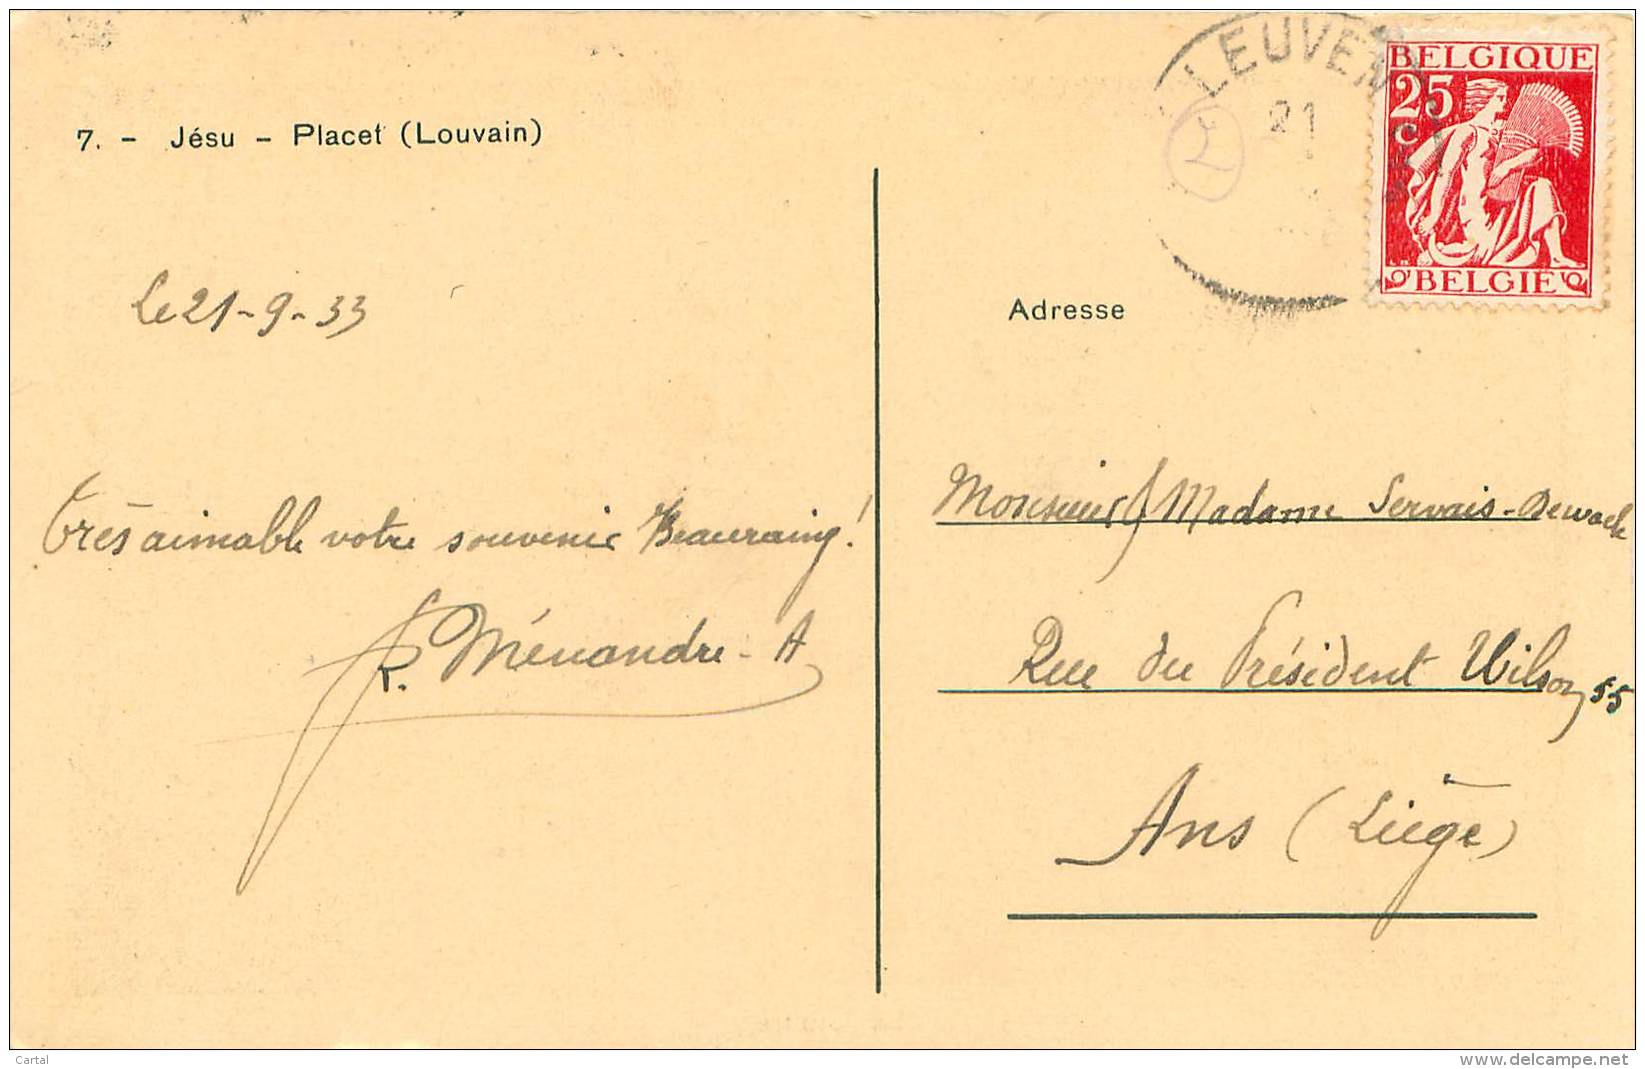 7. - Jésu - Placet (Louvain)
LEUVEN
21
BELGIQUE
25
C
BELGIE
Le 21-9-33
Adresse
Très aimable votre souvenir Beauraing!
Ménandre - A
Monsieur & Madame Servais-Dewach
Rue du Président Wilson 55
Ans (Liége)
Cartal
www.delcampe.net